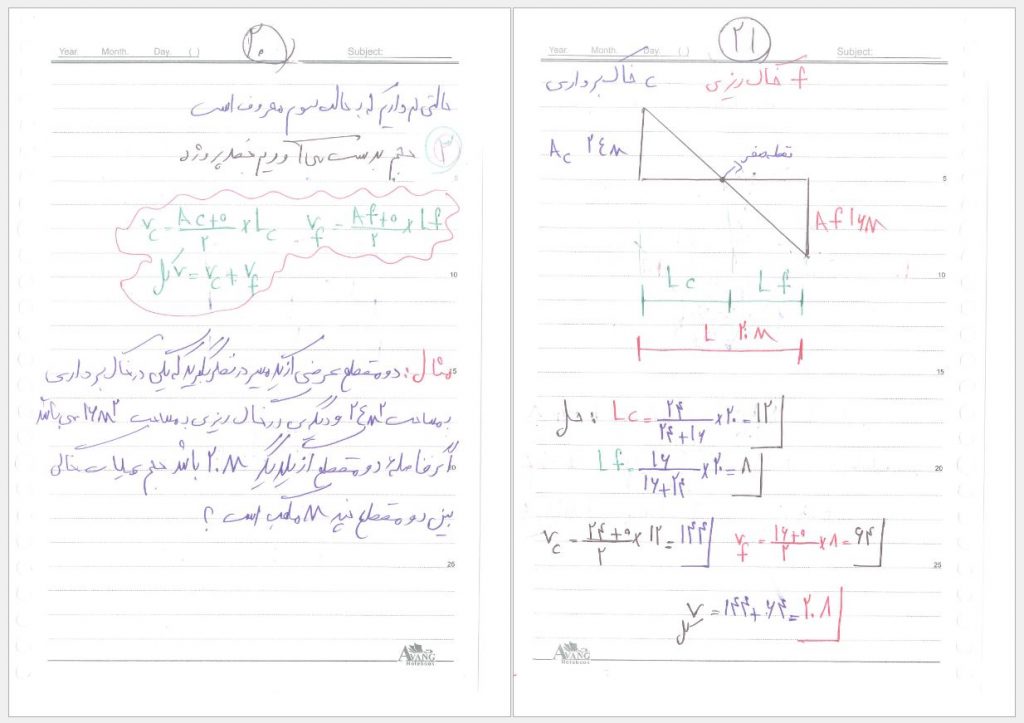 ۲۰
Year. Month. Day. ( ) Subject:
حالتی نم داریم که به حالت سوم معروف است
۳ حجم بدست می آوریم خط پروژه
Vc = Ac+0/۲ × Lc - Vf = Af+0/۲ × Lf
V کل = Vc + Vf
مثال: دو مقطع عرضی از یک مسیر در نظر بگیرید که یکی در خاک برداری
به مساحت ۲۴m² و دیگری در خاک ریزی به مساحت ۱۶m² می باشد
اگر فاصله دو مقطع از یکدیگر ۲۰m باشد حجم عملیات خاکی
بین دو مقطع چند m مکعب است ؟
5
10
15
20
25
AVANG
Notebook
۲۱
Year. Month. Day. ( ) Subject:
f خاک ریزی c خاک برداری
Ac ۲۴m
نقطه صفر
Af ۱۶m
Lc Lf
L ۲۰m
حل: Lc = ۲۴/۲۴+۱۶ × ۲۰ = ۱۲
Lf = ۱۶/۱۶+۲۴ × ۲۰ = ۸
Vc = ۲۴+0/۲ × ۱۲ = ۱۴۴ Vf = ۱۶+0/۲ × ۸ = ۶۴
V کل = ۱۴۴+۶۴ = ۲۰۸
5
10
15
20
25
AVANG
Notebook